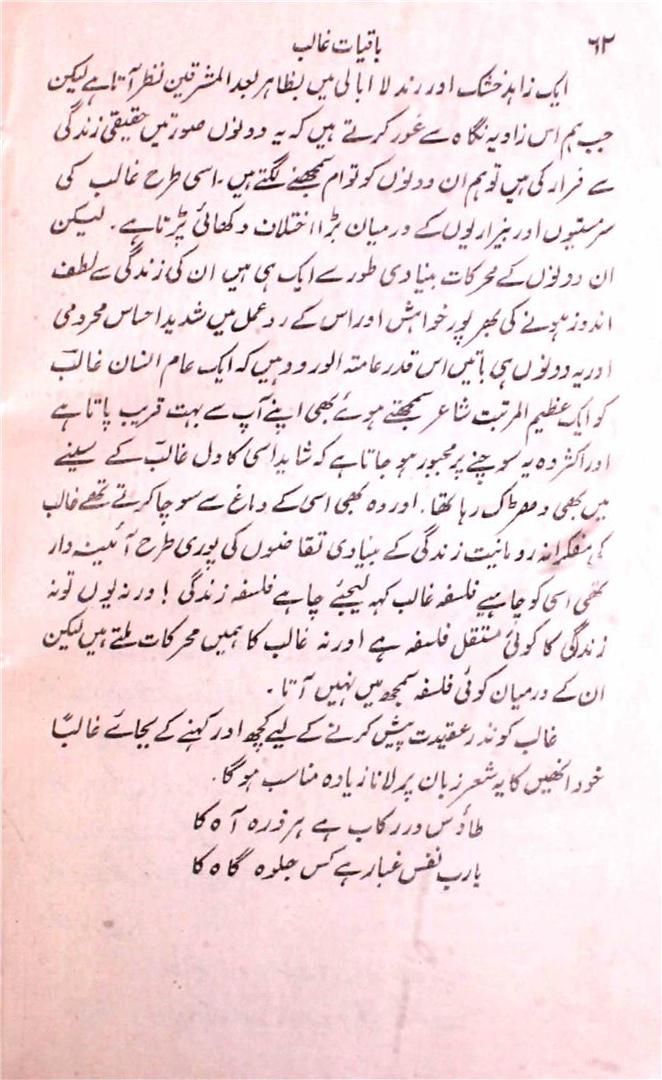 ۶۲ باقیات غالب
ایک زاہد خشک اور رند لا ابالی میں بظاہر بعد المشرقین نظر آتا ہے لیکن
جب ہم اس زاویہ نگاہ سے غور کرتے ہیں کہ یہ دونوں صورتیں حقیقی زندگی
سے فرار کی ہیں تو ہم ان دونوں کو توام سمجھنے لگتے ہیں ۔ اسی طرح غالب کی
سرمستیوں اور بیزاریوں کے درمیان بڑا اختلاف دکھائی پڑتا ہے ۔ لیکن
ان دونوں کے محرکات بنیادی طور سے ایک ہی ہیں ان کی زندگی سے لطف
اندوز ہونے کی بھر پور خواہش اور اس کے ردعمل میں شدید احساس محرومی
اور یہ دونوں ہی باتیں اس قدر عامتہ الورود ہیں کہ ایک عام انسان غالبؔ
کو ایک عظیم المرتبت شاعر سمجھتے ہوئے بھی اپنے آپ سے بہت قریب پاتا ہے
اور اکثر وہ یہ سوچنے پر مجبور ہو جاتا ہے کہ شاید اسی کا دل غالبؔ کے سینے
میں بھی دھڑک رہا تھا ۔ اور وہ بھی اسی کے دماغ سے سوچا کرتے تھے غالب
کی مفکرانہ رومانیت زندگی کے بنیادی تقاضوں کی پوری طرح آئینہ دار
تھی اسی کو چاہیے فلسفہ غالب کہہ لیجئے چاہے فلسفہ زندگی ! ورنہ یوں تو نہ
زندگی کا کوئی مستقل فلسفہ ہے اور نہ غالب کا ہمیں محرکات ملتے ہیں لیکن
ان کے درمیان کوئی فلسفہ سمجھ میں نہیں آتا ۔
غالب کو نذر عقیدت پیش کرنے کے لیے کچھ اور کہنے کے بجائے غالباً
خود انھیں کا یہ شعر زبان پر لانا زیادہ مناسب ہو گا ۔
طاؤس در رکاب ہے ہر ذرہ آہ کا
یارب نفس غبار ہے کس جلوہ گاہ کا